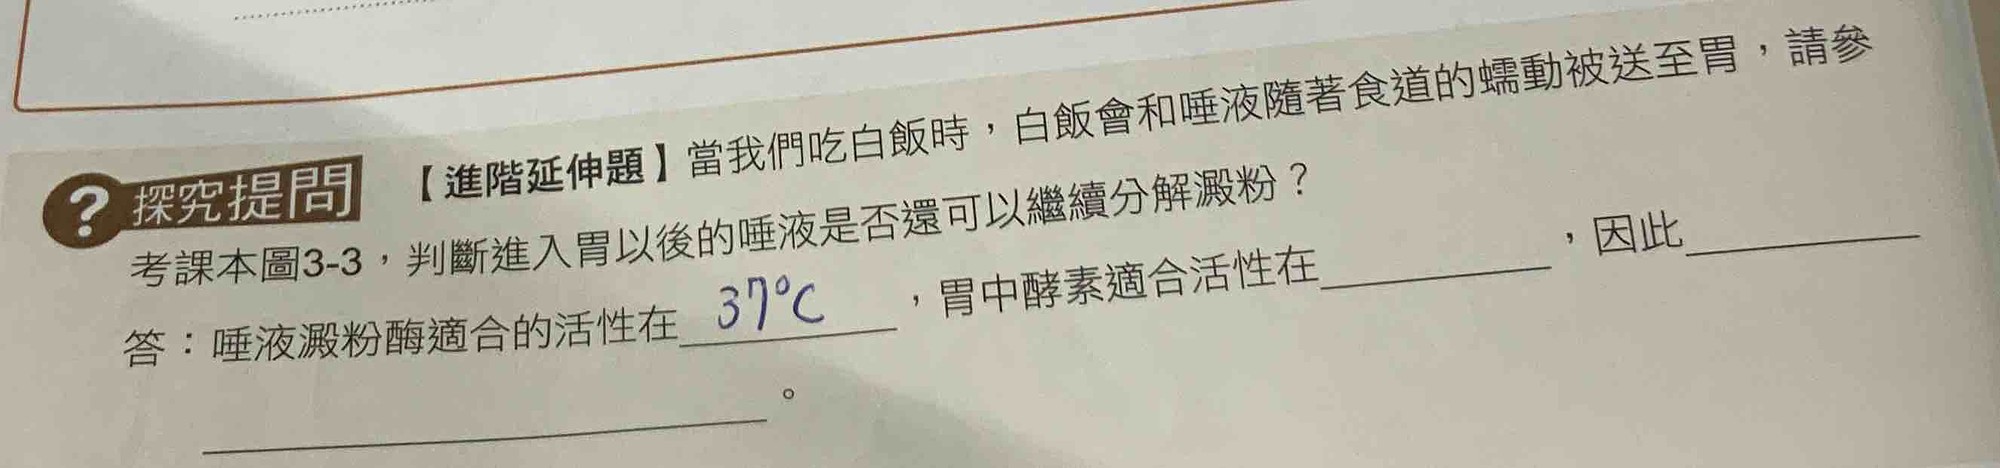 ?探究提問 【進階延伸題】當我們吃白飯時，白飯會和唾液隨著食道的蠕動被送至胃，請參
考課本圖3-3，判斷進入胃以後的唾液是否還可以繼續分解澱粉？
答：唾液澱粉酶適合的活性在 37°C ，胃中酵素適合活性在 ，因此
。